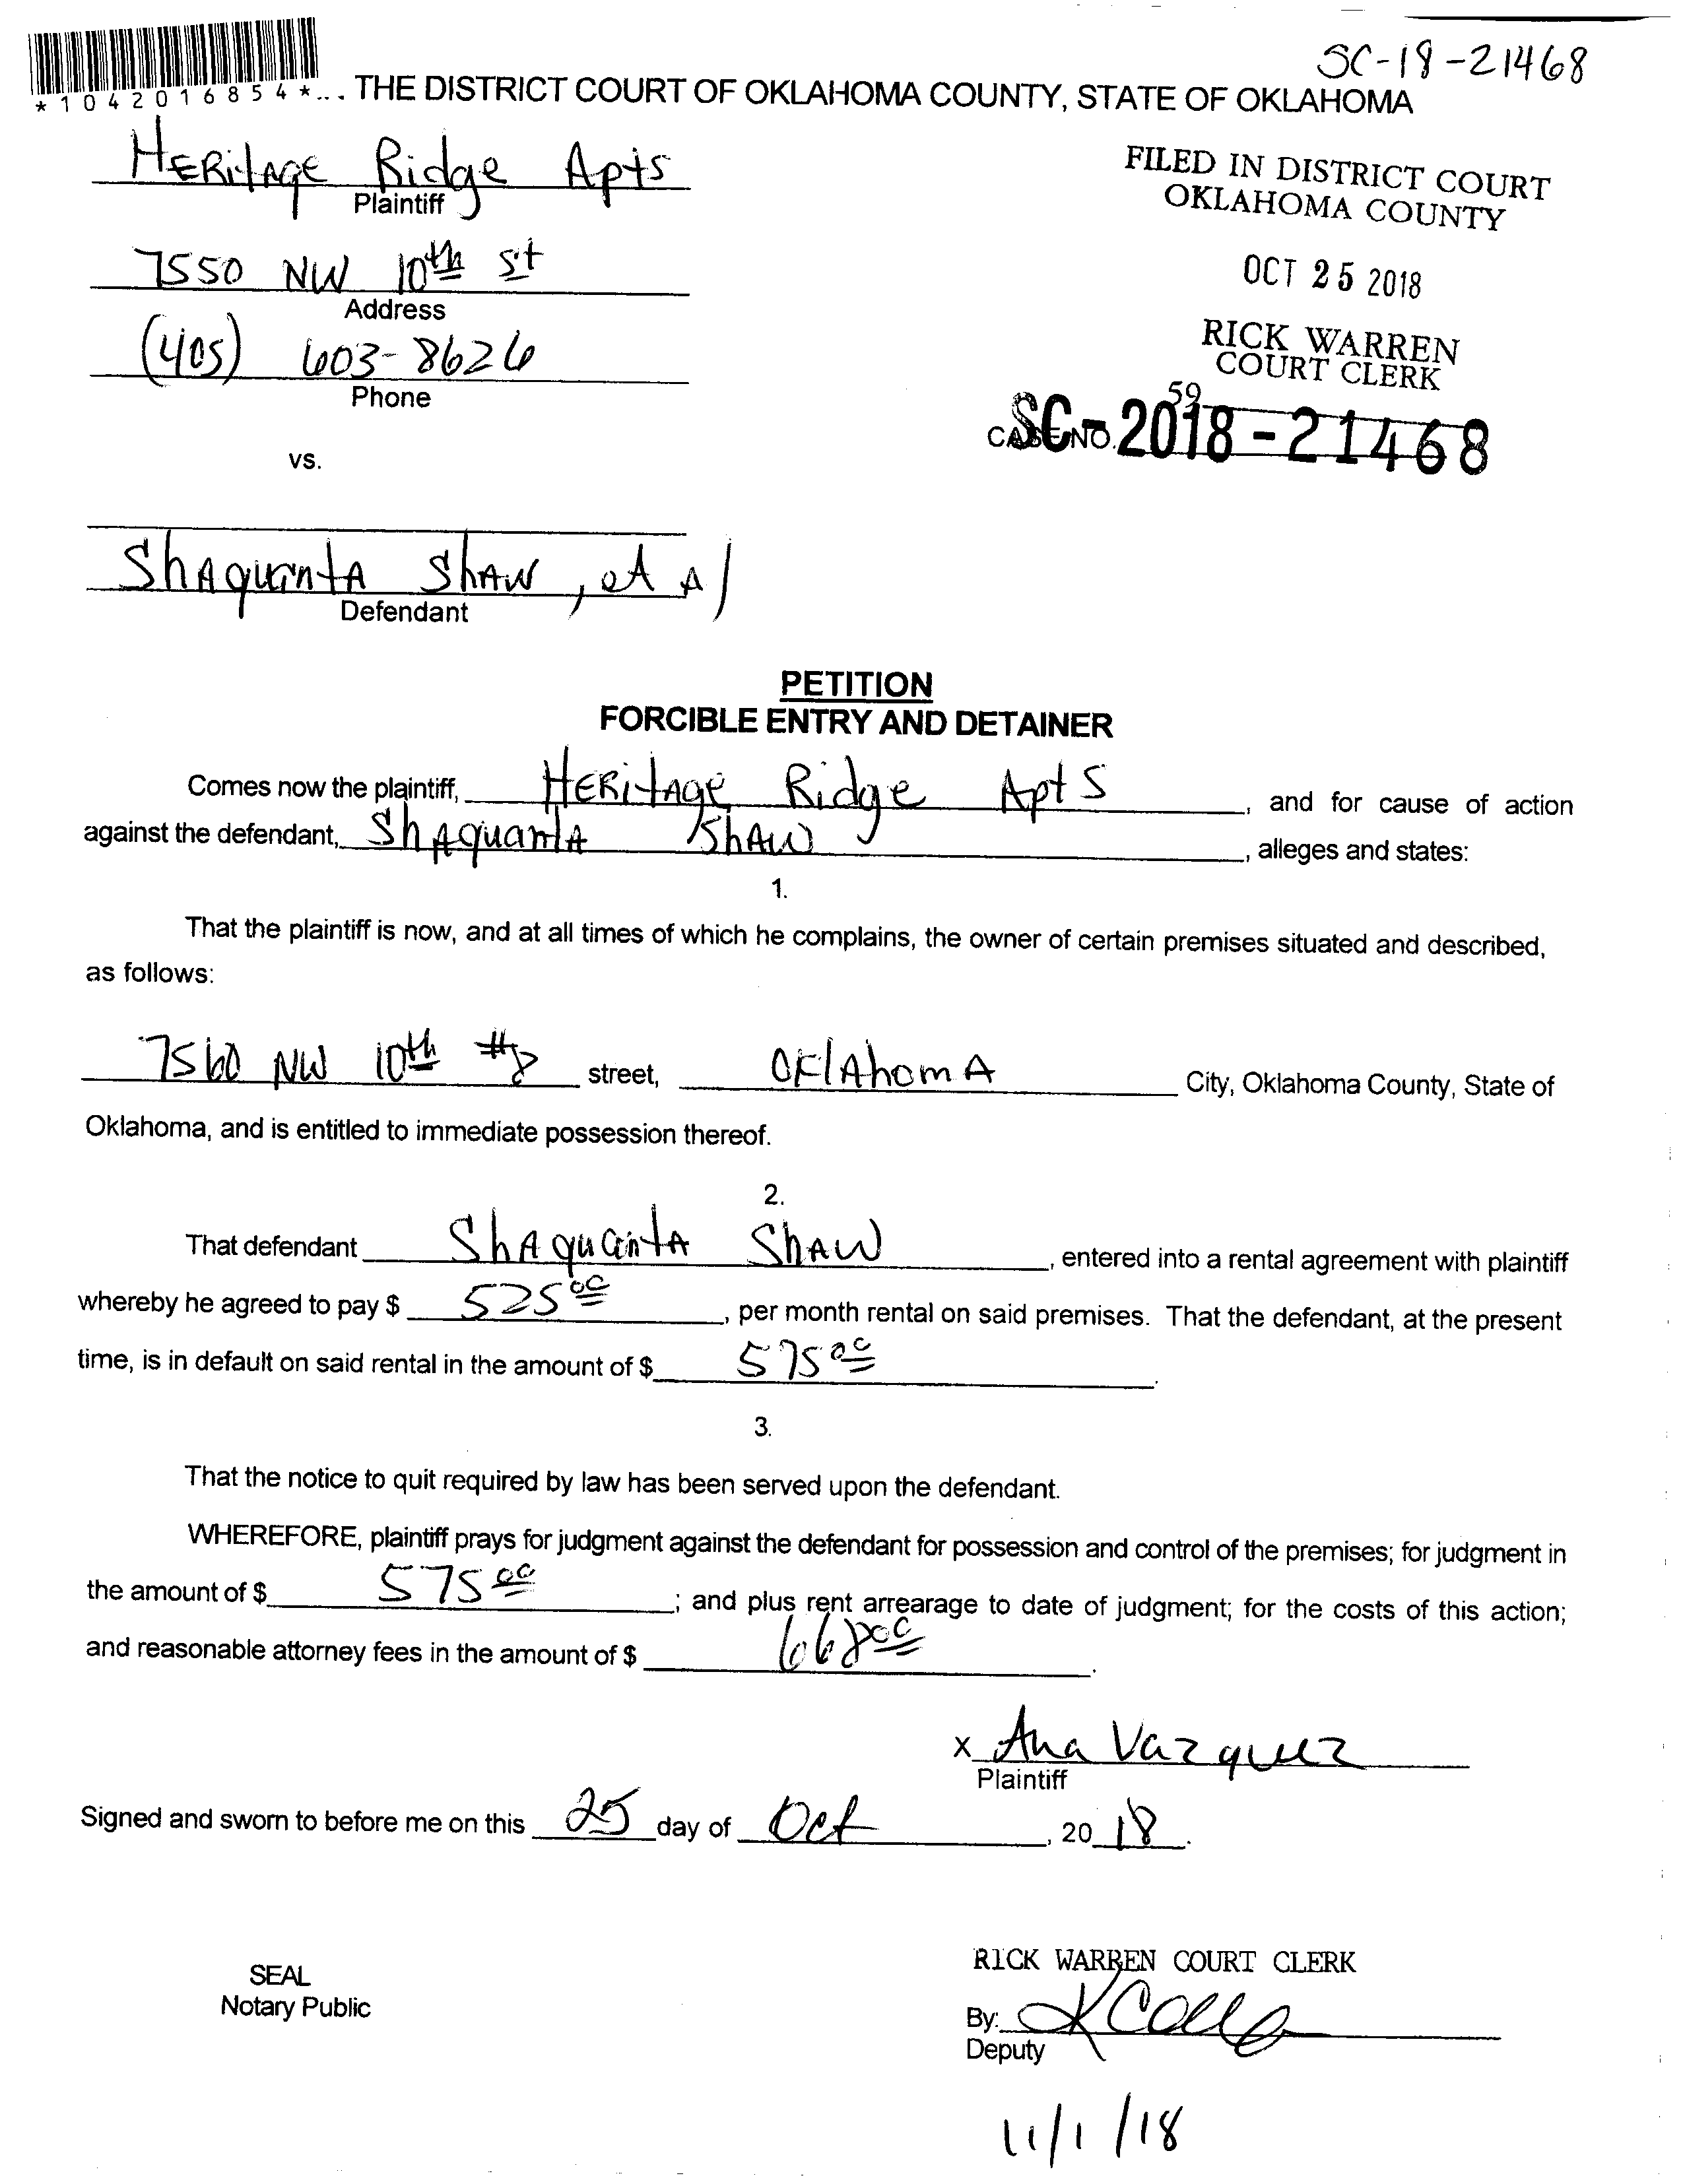 SC-18-21468
*1042016854*... THE DISTRICT COURT OF OKLAHOMA COUNTY, STATE OF OKLAHOMA
HERitAGE Ridge Apts
Plaintiff
FILED IN DISTRICT COURT
OKLAHOMA COUNTY
7550 NW 10th St
Address
OCT 25 2018
(405) 603-8626
Phone
RICK WARREN
COURT CLERK
59
CASE NO. SC-2018-21468
vs.
ShAquantA ShAW, et Al
Defendant
PETITION
FORCIBLE ENTRY AND DETAINER
Comes now the plaintiff, HERitAGE Ridge Apts, and for cause of action
against the defendant, ShAquantA ShAW, alleges and states:
1.
That the plaintiff is now, and at all times of which he complains, the owner of certain premises situated and described,
as follows:
7560 NW 10th #8 street, OklAhomA City, Oklahoma County, State of
Oklahoma, and is entitled to immediate possession thereof.
2.
That defendant ShAquantA ShAW, entered into a rental agreement with plaintiff
whereby he agreed to pay $ 525 00, per month rental on said premises. That the defendant, at the present
time, is in default on said rental in the amount of $ 575 00.
3.
That the notice to quit required by law has been served upon the defendant.
WHEREFORE, plaintiff prays for judgment against the defendant for possession and control of the premises; for judgment in
the amount of $ 575 00; and plus rent arrearage to date of judgment; for the costs of this action;
and reasonable attorney fees in the amount of $ 668 00.
X Ana Vazquez
Plaintiff
Signed and sworn to before me on this 25 day of Oct, 20 18.
SEAL
Notary Public
RICK WARREN COURT CLERK
By:
Deputy
11/1/18